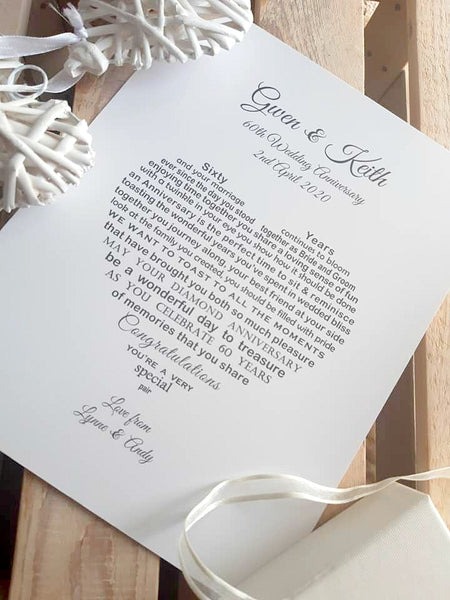 Gwen & Keith
60th Wedding Anniversary
2nd April 2020
Sixty Years
and your marriage continues to bloom
ever since the day you stood together as Bride and Groom
enjoying time together you share a loving sense of fun
with a twinkle in your eye you show how it should be done
an Anniversary is the perfect time to sit & reminisce
toasting the wonderful years you've spent in wedded bliss
together you journey along, your best friend at your side
look at the family you created, you should be filled with pride
WE WANT TO TOAST TO ALL THE MOMENTS
that have brought you both so much pleasure
MAY YOUR DIAMOND ANNIVERSARY
be a wonderful day to treasure
AS YOU CELEBRATE 60 YEARS
of memories that you share
Congratulations
YOU'RE A VERY
special
pair
Love from
Lynne & Andy